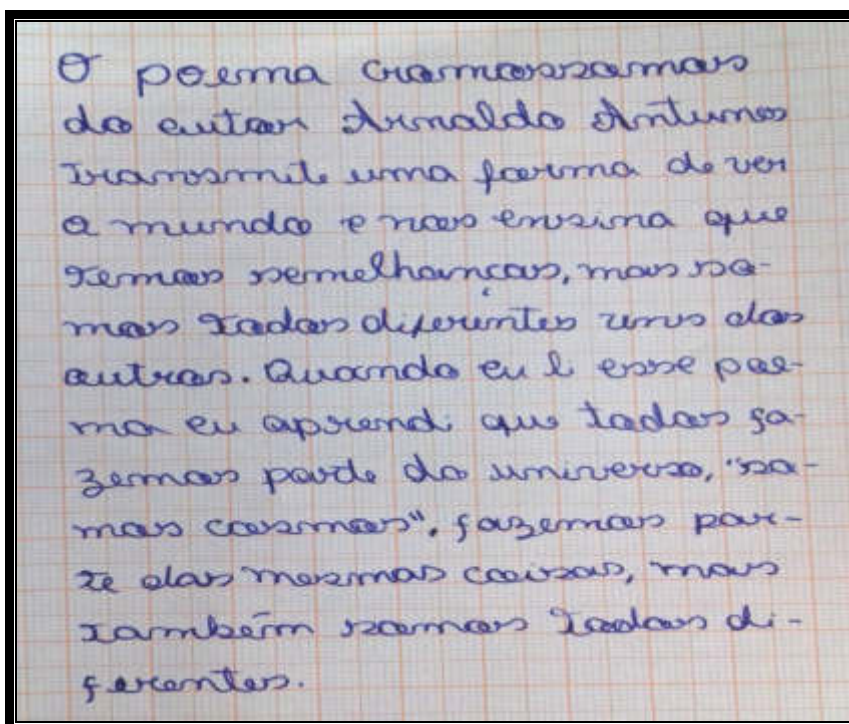 O poema cromossomos
do autor Arnaldo Antunes
transmite uma forma de ver
o mundo e nos ensina que
temos semelhanças, mas so-
mos todos diferentes uns dos
outros. Quando eu li esse poe-
ma eu aprendi que todos fa-
zemos parte do universo, "so-
mos cosmos", fazemos par-
te das mesmas coisas, mas
também somos todos di-
ferentes.